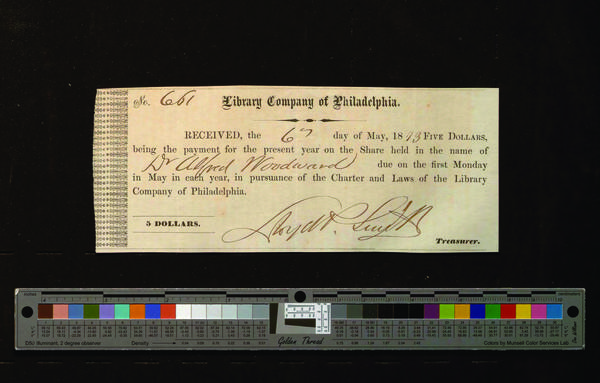 No. 661 Library Company of Philadelphia.
RECEIVED, the 6th day of May, 1873 FIVE DOLLARS,
being the payment for the present year on the Share held in the name of
Dr Alfred Woodward due on the first Monday
in May in each year, in pursuance of the Charter and Laws of the Library
Company of Philadelphia.
5 DOLLARS. Lloyd P. Smith
Treasurer.
D50 Illuminant, 2 degree observer Density Golden Thread Colors by Munsell Color Services Lab